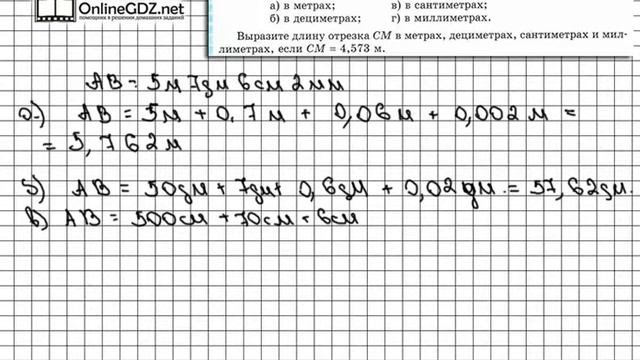 OnlineGDZ.net
помощник в решении домашних заданий
а) в метрах; в) в сантиметрах;
б) в дециметрах; г) в миллиметрах.
Выразите длину отрезка CM в метрах, дециметрах, сантиметрах и мил-
лиметрах, если CM = 4,573 м.
AB = 5м 7дм 6см 2мм
а) AB = 5м + 0,7м + 0,06м + 0,002м =
= 5,762м
б) AB = 50дм + 7дм + 0,6дм + 0,02дм = 57,62дм.
в) AB = 500см + 70см + 6см